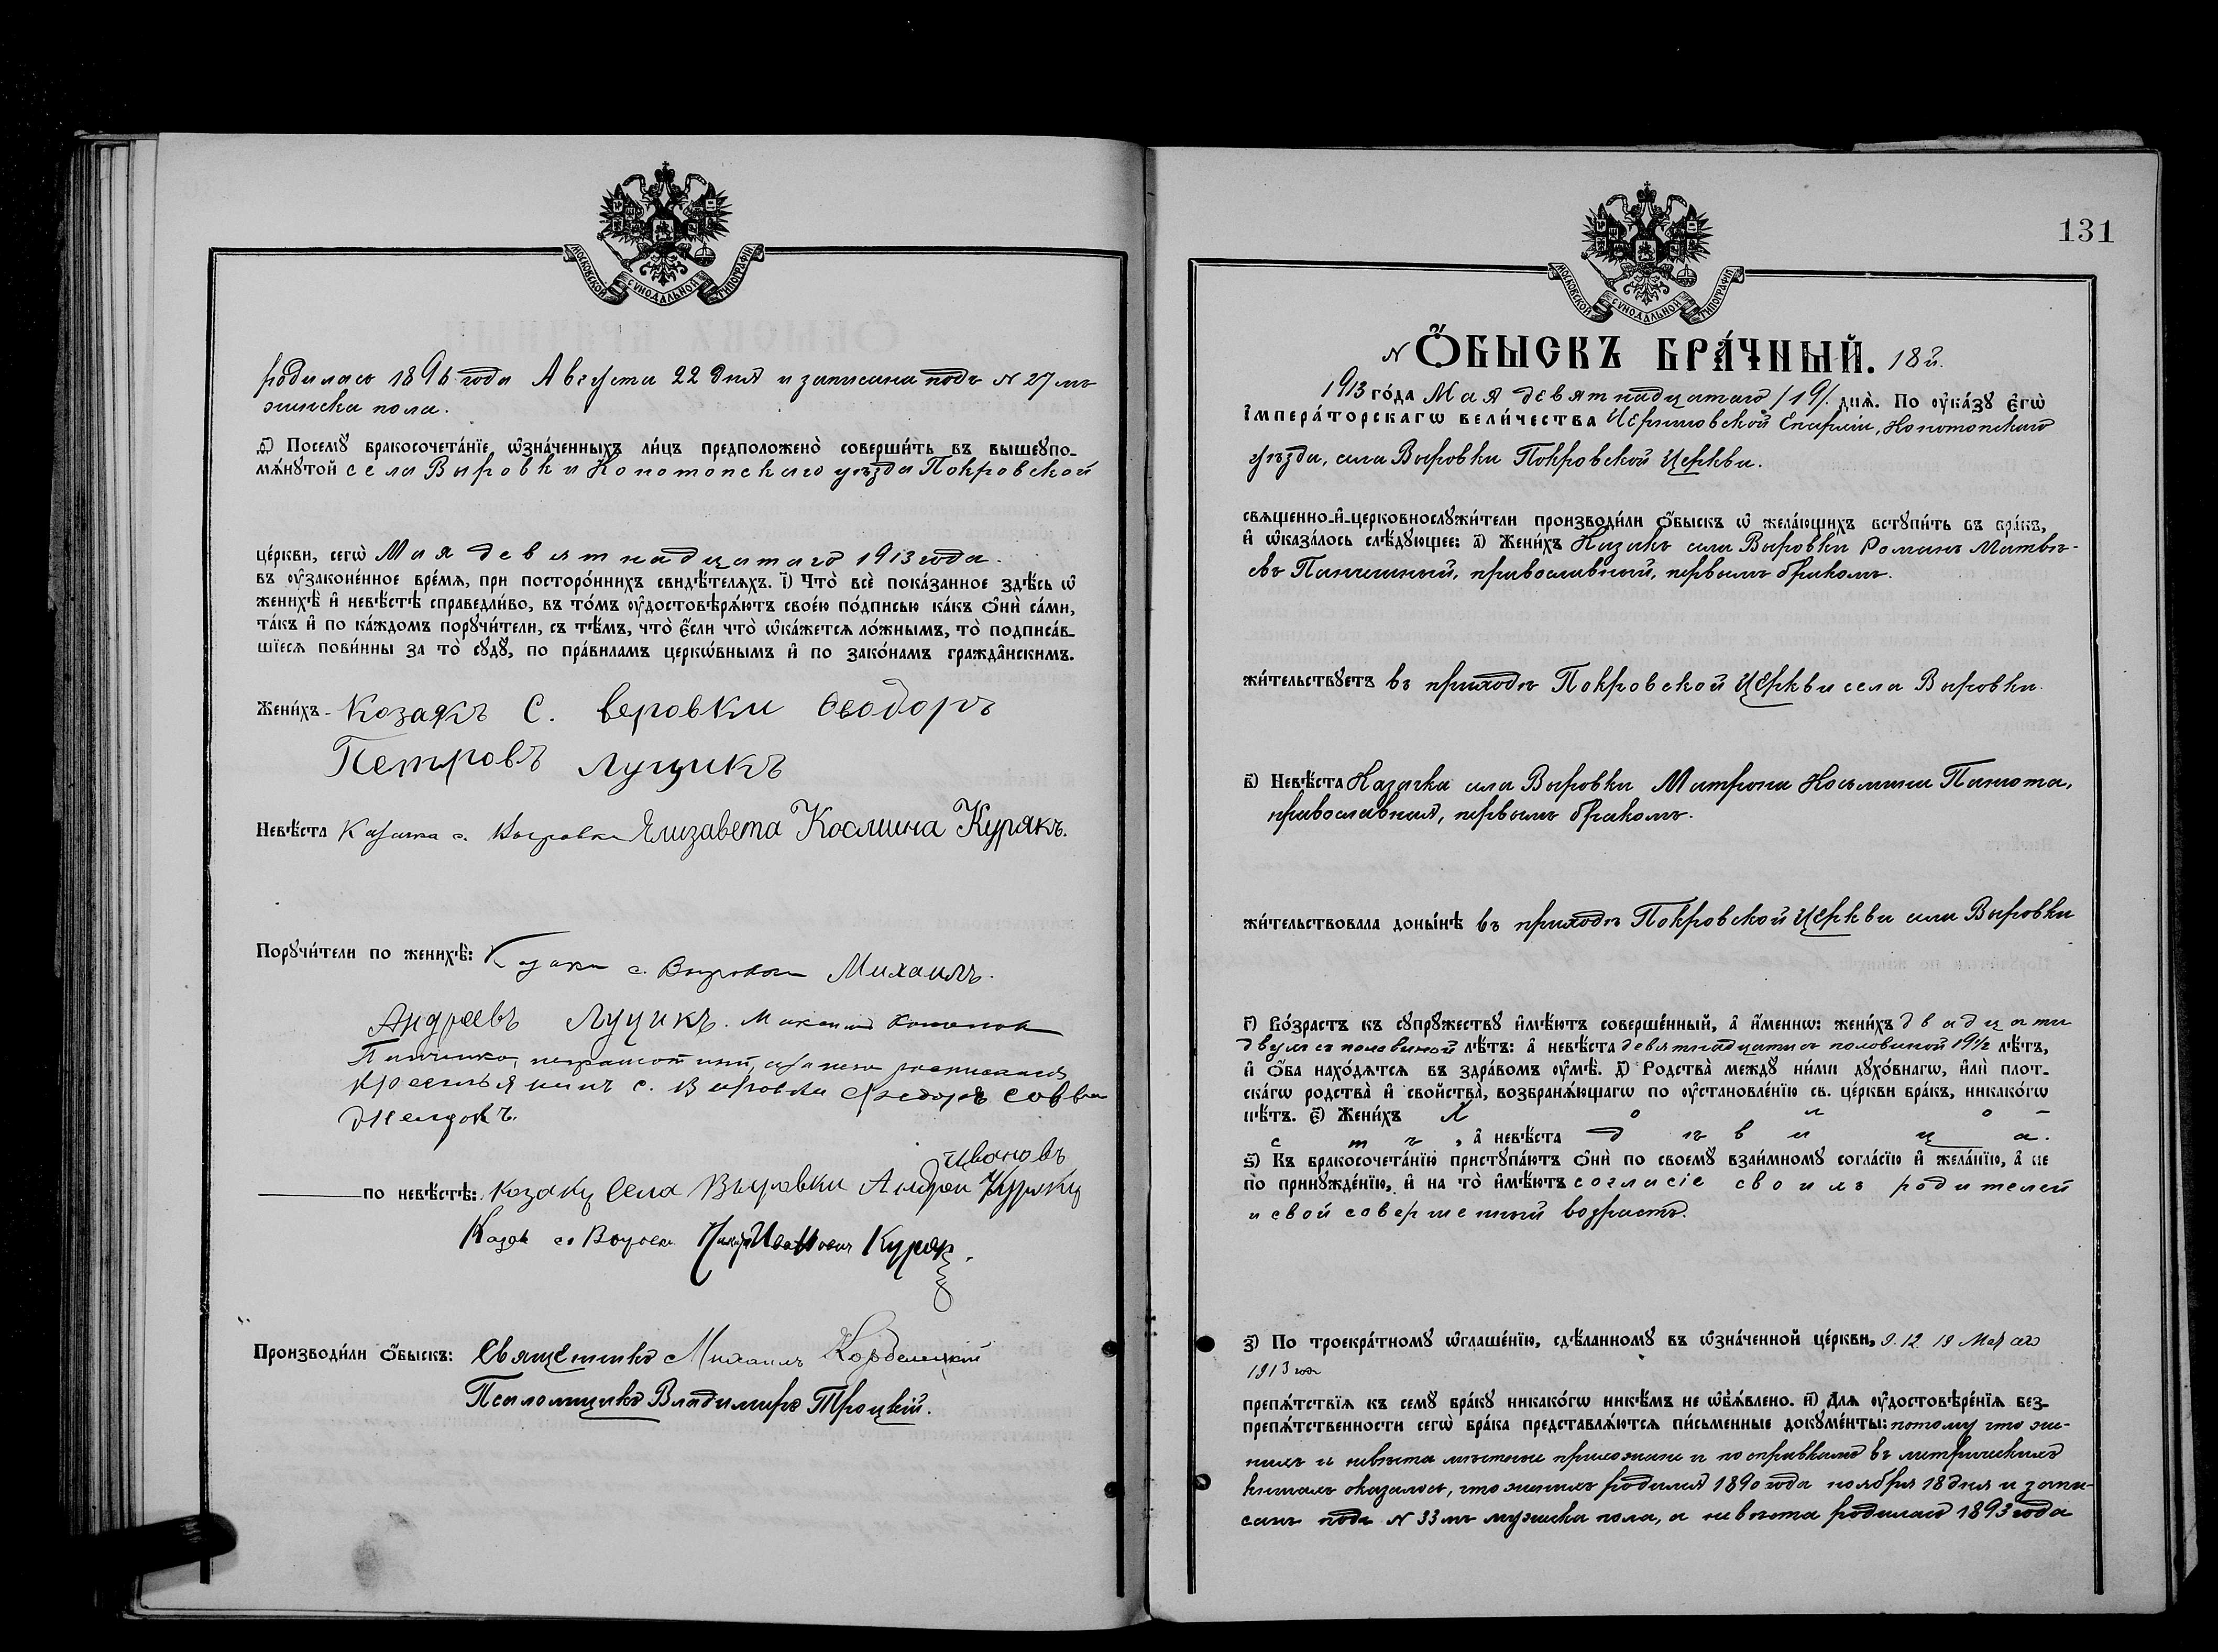 МОСКОВСКОЙ СѴНОДАЛЬНОЙ ТИПОГРАФІИ
родилась 1896 года Августа 22 дня и записана подъ N 27 мъ
женска пола.
ѳ҃) Посемꙋ бракосочета́нїе ѡ҆зна́ченныхъ ли́цъ предположено̀ соверши́ть въ вышеꙋпо-
мѧ́нꙋтой села Выровки Конотопскаго уѣзда Покровской
це́ркви, сегѡ̀ Мая девятнадцатаго 1913 года.
въ ᲂу҆законе́нное вре́мѧ, при посторо́ннихъ свидѣ́телѧхъ. і҃) Что̀ всѐ пока́занное здѣ́сь ѡ҆
женихѣ̀ и҆ невѣ́стѣ справедли́во, въ то́мъ ᲂу҆достовѣрѧ́ютъ свое́ю по́дписью ка́къ ѻ҆нѝ са́ми,
та́къ и҆ по ка́ждомъ порꙋчи́тели, съ тѣ́мъ, что̀ є҆́сли что̀ ѡ҆ка́жетсѧ ло́жнымъ, то̀ подписа́в-
шїесѧ пови́нны за то̀ сꙋдꙋ̀, по пра́виламъ церкѡ́внымъ и҆ по зако́намъ гражда̂нскимъ.
Жени́хъ - Козакъ С. Веровки Ѳеодоръ
Петровъ Луцикъ
Невѣ́ста Казачка с. Выровки Елизавета Космина Курякъ.
Порꙋчи́тели по женихѣ̀: Казаки с. Выровки Михаилъ.
Андреевъ Луцикъ.
неграмотный,
крестьянинъ с. Выровки Ѳеодоръ Савва
Ивановъ
по невѣ́стѣ: Козакъ Села Выровки Андрей Курякъ
Казак с. Куряк
Производи́ли ѻ҆́быскъ: Священникъ Михаилъ Корбелецкій
Псаломщикъ Владимиръ Троцкій.
131
МОСКОВСКОЙ СѴНОДАЛЬНОЙ ТИПОГРАФІИ
N Ѻ҆́БЫСКЪ БРА́ЧНЫЙ. 18й.
1913 го́да Мая девятнадцатаго /19/ днѧ̀. По ᲂу҆ка́зꙋ є҆гѡ̀
і҆мпера́торскагѡ вели́чества Черниговской Епархіи, Конотопскаго
уѣзда, села Выровки Покровской Церкви.
свѧщенно-и҆-церковнослꙋжи́тели производи́ли ѻ҆́быскъ ѡ҆ жела́ющихъ вступи́ть въ бра́къ,
и҆ ѡ҆каза́лось слѣ́дꙋющее: а҃) Жени́хъ Казакъ села Выровки Романъ Матвѣ-
евъ православный, первымъ бракомъ.
жи́тельствꙋетъ въ приходѣ Покровской Церкви села Выровки.
в҃) Невѣ́ста Казачка села Выровки Матрона Косьмина
православная, первымъ бракомъ.
жи́тельствовала доны́нѣ въ приходѣ Покровской Церкви села Выровки
г҃) Во́зрастъ къ сꙋпрꙋжествꙋ и҆мѣ́ютъ соверше́нный, а҆ и҆́меннѡ: жени́хъ двадцати
двухъ съ половиной лѣ́тъ: а҆ невѣ́ста девятнадцати съ половиной 19½ лѣ́тъ,
и҆ ѻ҆́ба нахо́дѧтсѧ въ здра́вомъ ᲂу҆мѣ̀. д҃) Родства̀ междꙋ ни́ми дꙋхо́внагѡ, и҆лѝ плот-
ска́гѡ родства̀ и҆ свойства̀, возбранѧ́ющагѡ по ᲂу҆становле́нїю св. це́ркви бра́къ, никако́гѡ
нѣ́тъ. є҃) Жени́хъ Х о л о -
с т ъ , а҆ невѣ́ста д ѣ в и ц а.
ѕ҃) Къ бракосочета́нїю пристꙋпа́ютъ ѻ҆нѝ по своемꙋ̀ взаи́мномꙋ согла́сїю и҆ жела́нїю, а҆ не
по принꙋжде́нїю, и҆ на то̀ и҆мѣ́ютъ согласіе своихъ родителей
и свой совершенный возрастъ.
з҃) По троекра́тномꙋ ѡ҆глаше́нїю, сдѣ́ланномꙋ въ ѡ҆зна́ченной це́ркви, 9. 12. 19 Мая сего
1913 года
препѧ́тствїѧ къ семꙋ̀ бра́кꙋ никако́гѡ никѣ́мъ не ѡ҆б̾ѧ́влено. и҃) Длѧ ᲂу҆достовѣре́нїѧ без-
препѧ́тственности сегѡ̀ бра́ка представлѧ́ютсѧ пи́сьменные докꙋме́нты: потому что же-
нихъ и невѣста мѣстные прихожане и по справкамъ въ метрическихъ
книгахъ оказалось, что женихъ родился 1890 года ноября 18 дня и запи-
санъ подъ N 33 мъ мужска пола, а невѣста родилась 1893 года